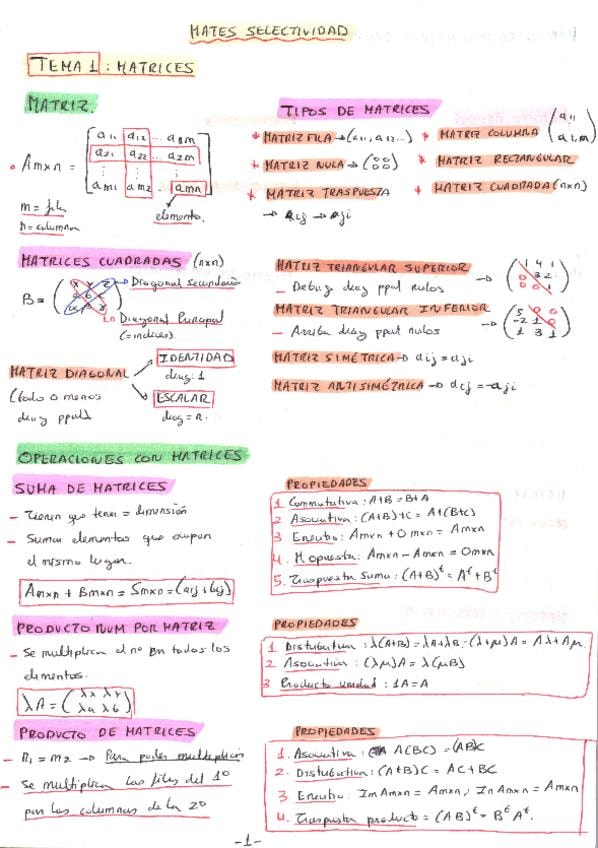 MATES SELECTIVIDAD
TEMA 1 : MATRICES
MATRIZ.
Amxn =
a11 a12 ... a1m
a21 a22 ... a2m
am1 am2 ... amn
m = fila
n = columna
elemento.
TIPOS DE MATRICES
* MATRIZ FILA → (a11, a12...)
* MATRIZ COLUMNA
* MATRIZ NULA →
* MATRIZ RECTANGULAR
* MATRIZ TRASPUESTA
→ aij → aji
* MATRIZ CUADRADA (nxn)
MATRICES CUADRADAS (nxn)
B =
Diagonal secundaria
Diagonal Principal
(= indices).
MATRIZ DIAGONAL
(todo 0 menos
diag ppal)
IDENTIDAD
diag: 1
ESCALAR
diag = n.
MATRIZ TRIANGULAR SUPERIOR
- Debajo diag ppal nulos →
1 4 1
0 3 2
0 0 1
MATRIZ TRIANGULAR INFERIOR
- Arriba diag ppal nulos →
5 0 0
-2 1 0
1 3 1
MATRIZ SIMÉTRICA → aij = aji
MATRIZ ANTISIMÉTRICA → aij = -aji
OPERACIONES CON MATRICES
SUMA DE MATRICES
- Tienen que tener = dimensión
- Suman elementos que ocupan
el mismo lugar.
Amxn + Bmxn = Smxn = (aij + bij)
PROPIEDADES
1 Conmutativa : A+B = B+A
2 Asociativa : (A+B)+C = A+(B+C)
3 Eneutro : Amxn + 0mxn = Amxn
4. M opuesta : Amxn - Amxn = 0mxn
5. Traspuesta Suma : (A+B)^t = A^t + B^t
PRODUCTO NUM POR MATRIZ
- Se multiplica el nº en todos los
elementos.
λA = (λx λy
λa λb)
PROPIEDADES
1 Distributiva : λ(A+B) = λA + λB · (λ+μ)A = Aλ + Aμ.
2 Asociativa : (λμ)A = λ(μB)
3 Producto unidad : 1A = A
PRODUCTO DE MATRICES
- n1 = m2 → Para poder multiplicar
- Se multiplica las filas del 1º
por las columnas de la 2º
PROPIEDADES
1. Asociativa : A(BC) = (AB)C
2. Distributiva : (A+B)C = AC + BC
3 Eneutro : Im Amxn = Amxn ; In Amxn = Amxn
4. Traspuesta producto = (AB)^t = B^t A^t.
-1-